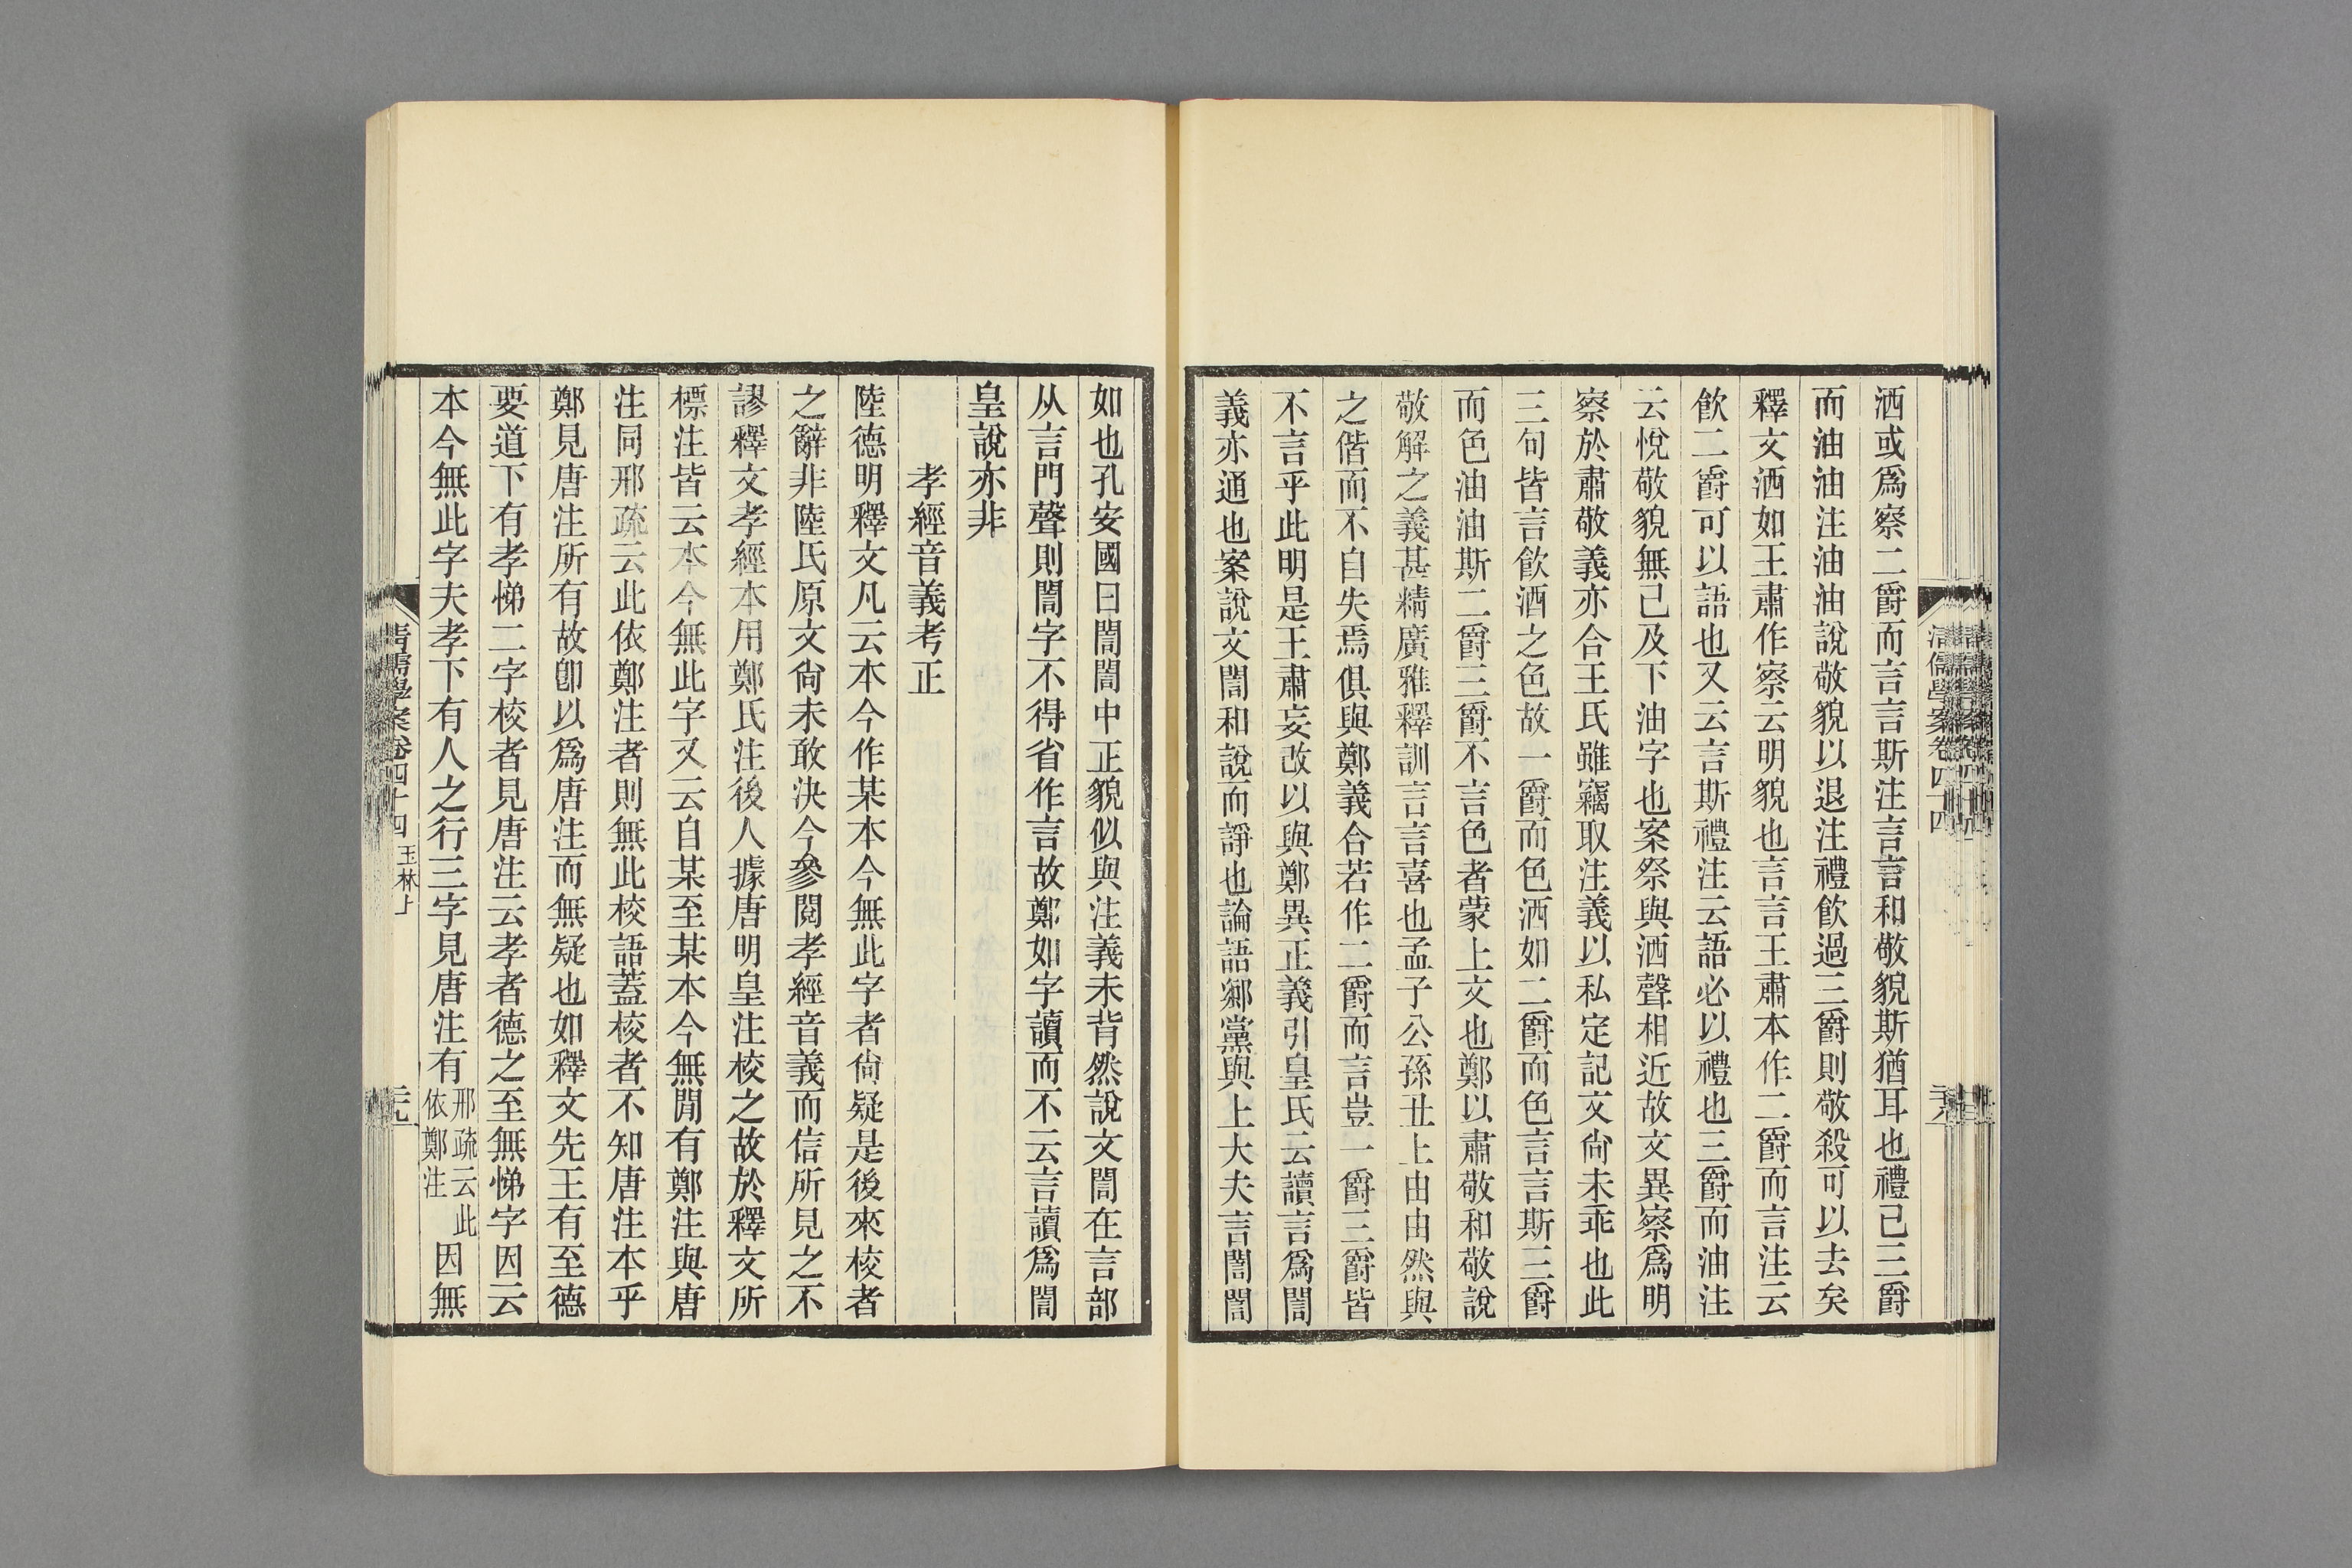 洒或爲察二爵而言言斯注言言和敬貌斯猶耳也禮已三爵
而油油注油油說敬貌以退注禮飲過三爵則敬殺可以去矣
釋文洒如王肅作察云明貌也言言王肅本作二爵而言注云
飲二爵可以語也又云言斯禮注云語必以禮也三爵而油注
云悅敬貌無已及下油字也案祭與洒聲相近故文異察爲明
察於肅敬義亦合王氏雖竊取注義以私定記文尙未乖也此
三句皆言飲酒之色故一爵而色洒如二爵而色言言斯三爵
而色油油斯二爵三爵不言色者蒙上文也鄭以肅敬和敬說
敬解之義甚精廣雅釋訓言言喜也孟子公孫丑上由由然與
之偕而不自失焉俱與鄭義合若作二爵而言豈一爵三爵皆
不言乎此明是王肅妄改以與鄭異正義引皇氏云讀言爲誾
義亦通也案說文誾和說而諍也論語鄉黨與上大夫言誾誾
清儒學案卷四十四
如也孔安國曰誾誾中正貌似與注義未背然說文誾在言部
从言門聲則誾字不得省作言故鄭如字讀而不云言讀爲誾
皇說亦非
孝經音義考正
陸德明釋文凡云本今作某本今無此字者尙疑是後來校者
之辭非陸氏原文尙未敢決今參閱孝經音義而信所見之不
謬釋文孝經本用鄭氏注後人據唐明皇注校之故於釋文所
標注皆云本今無此字又云自某至某本今無閒有鄭注與唐
注同邢疏云此依鄭注者則無此校語蓋校者不知唐注本乎
鄭見唐注所有故卽以爲唐注而無疑也如釋文先王有至德
要道下有孝悌二字校者見唐注云孝者德之至無悌字因云
本今無此字夫孝下有人之行三字見唐注有邢疏云此依鄭注因無
清儒學案卷四十四 玉林上